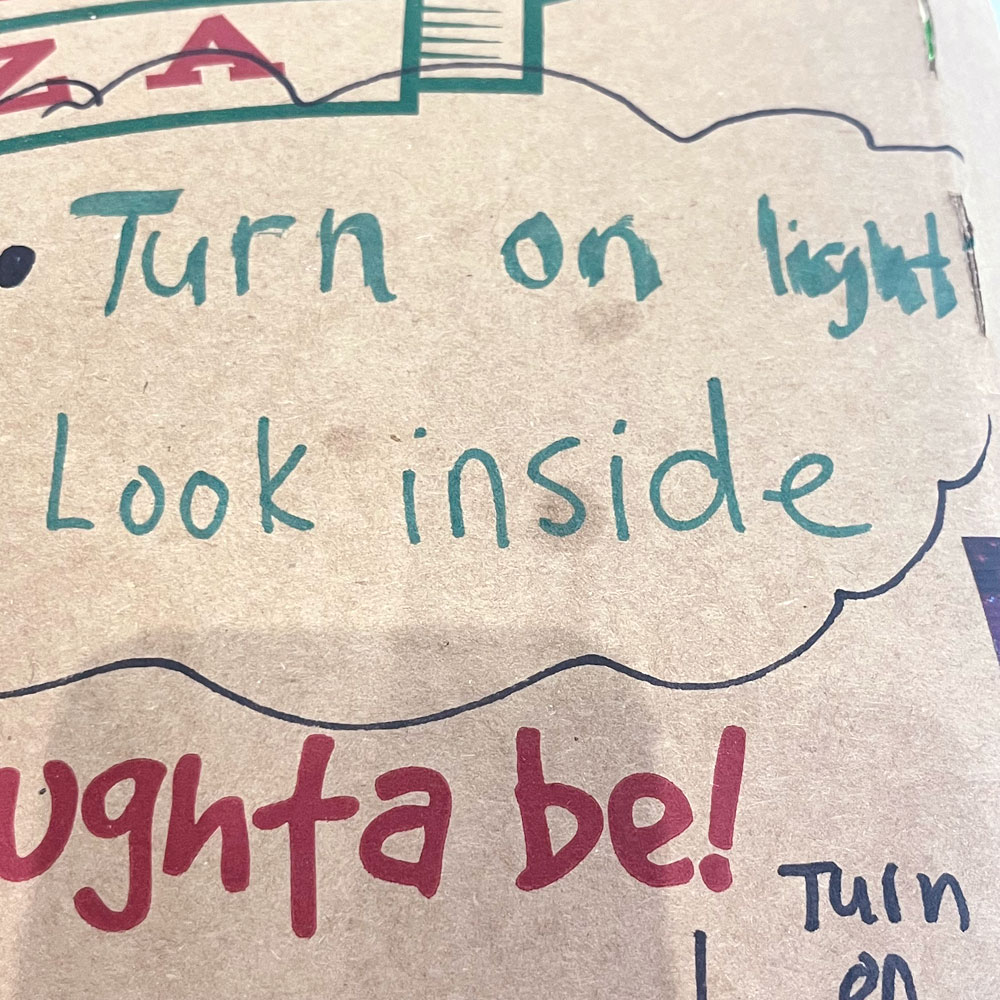 ZA
Turn on light
Look inside
ughta be!
Turn
on